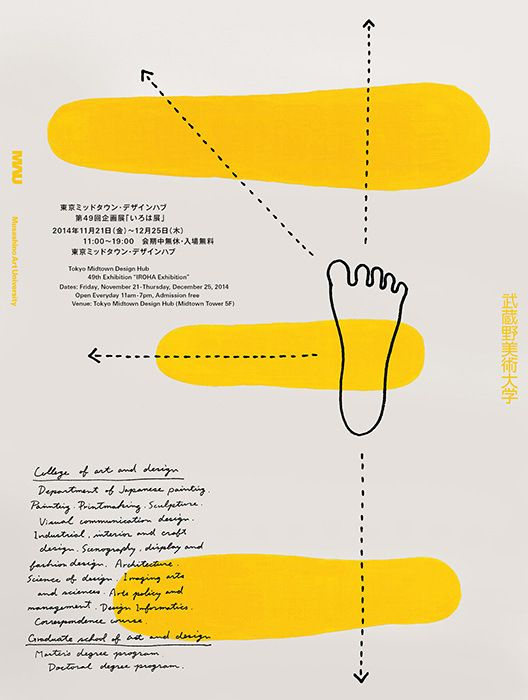 MAU
Musashino Art University
東京ミッドタウン・デザインハブ
第49回企画展「いろは展」
2014年11月21日(金)〜12月25日(木)
11:00〜19:00　会期中無休・入場無料
東京ミッドタウン・デザインハブ
Tokyo Midtown Design Hub
49th Exhibition "IROHA Exhibition"
Dates: Friday, November 21-Thursday, December 25, 2014
Open Everyday 11am-7pm, Admission free
Venue: Tokyo Midtown Design Hub (Midtown Tower 5F)
武蔵野美術大学
College of art and design
Department of Japanese painting.
Painting. Printmaking. Sculpture.
Visual communication design.
Industrial, interior and craft
design. Scenography, display and
fashion design. Architecture.
Science of design. Imaging arts
and sciences. Arts policy and
management. Design Informatics.
Correspondence course.
Graduate school of art and design
Master's degree program
Doctoral degree program.